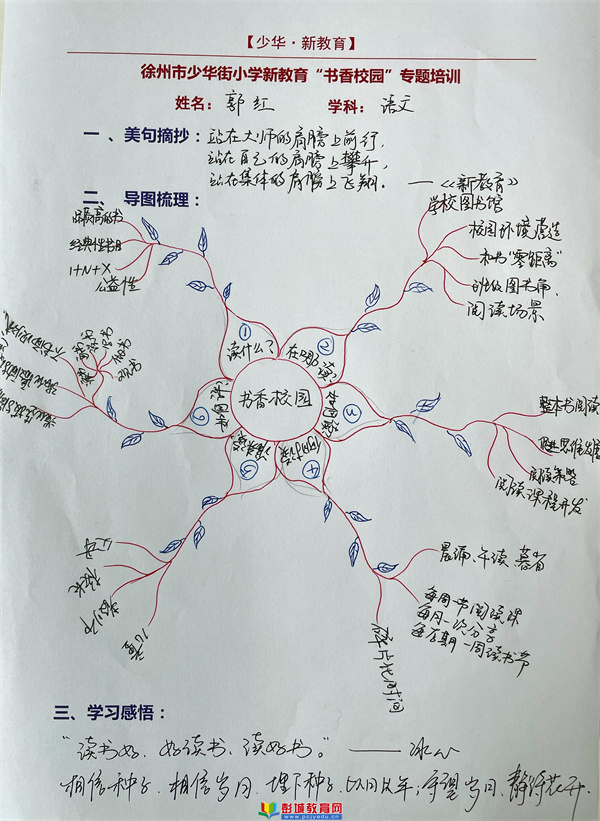 【少华·新教育】
徐州市少华街小学新教育“书香校园”专题培训
姓名：郭红 学科：语文
一、美句摘抄：站在大师的肩膀上前行，
站在自己的肩膀上攀升，
站在集体的肩膀上飞翔。
——《新教育》
二、导图梳理：
书香校园
①
读什么？
经典性书目
1+N+X
公益性
②
在哪读？
学校图书馆
校园环境营造
和书“零距离”
班级图书角
阅读场景
③
整本书阅读
阅读策略
阅读课程开发
④
晨诵、午读、暮省
每周一节阅读课
每月一次分享
每学期一周读书节
碎片化时间
⑤
校长
⑥
三、学习感悟：
“读书好、好读书、读好书。”——冰心
相信种子、相信岁月、埋下种子，以日以年；守望岁月、静待花开.
彭城教育网
www.pcjyedu.cn